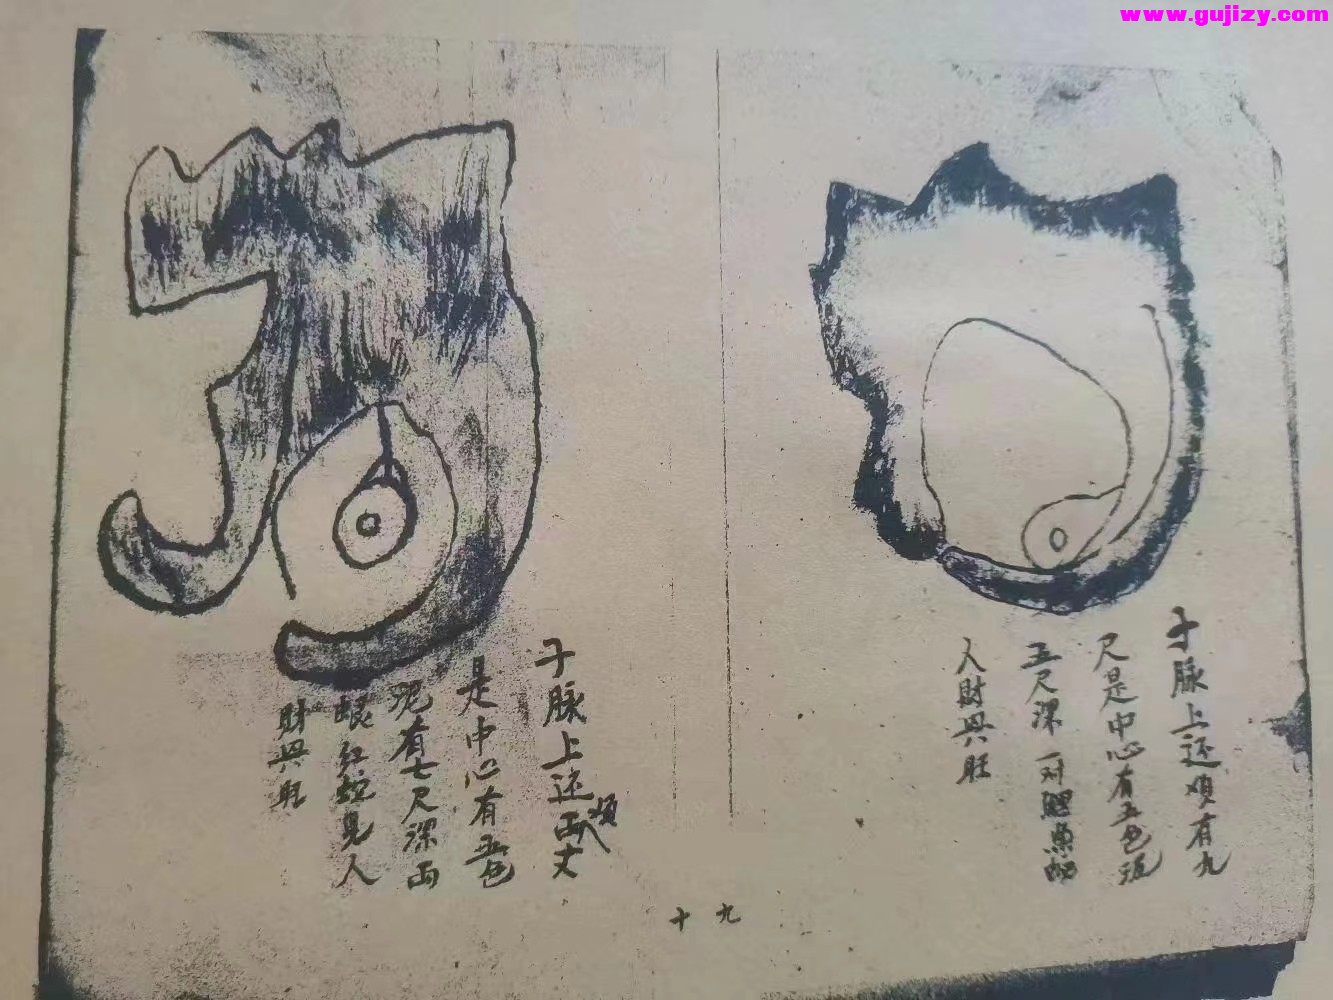 www.gujizy.com
子脉上还须有九
尺是中心有五色泥
五尺深一对鲤鱼
人財兴旺
子脉上还须两丈
是中心有五色
泥有七尺深两
眼红蛇見人
財兴旺
十九